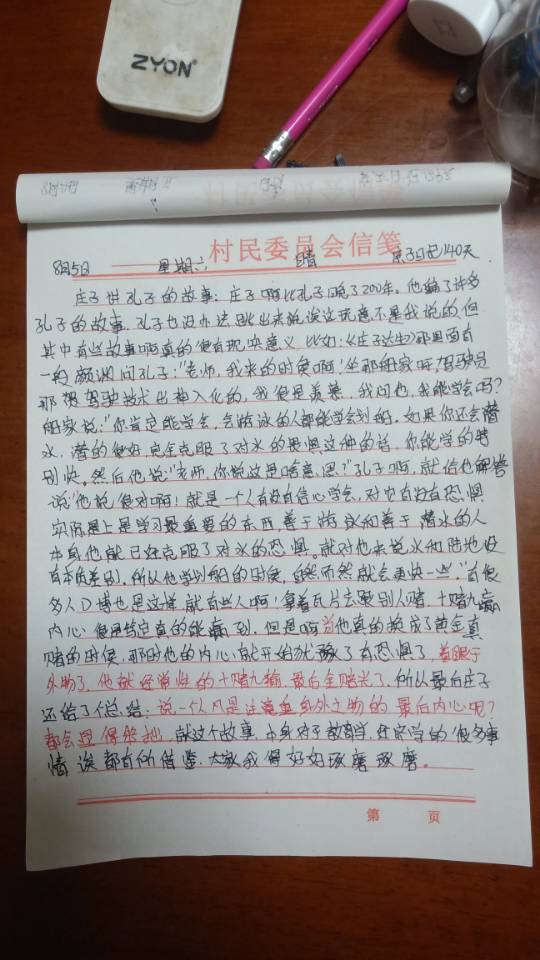 ZYON
村民委员会信笺
8月5日 星期六 晴 亲子日记140天
庄子讲孔子的故事：庄子啊比孔子晚了200年。他编了许多
孔子的故事，孔子也没办法跳出来说这玩意不是我说的，但
其中有些故事啊真的很有现实意义，比如：《庄子达生》那里面有
一段颜渊问孔子："老师，我来的时候啊！坐那船家呀，驾驶员
那驾驶技术出神入化的，我很是羡慕，我问他，我能学会吗？
船家说："你肯定能学会，会游泳的人都能学会划船。如果你还会潜
水，潜的很好，完全克服了对水的畏惧这种的话，你能学的特
别快。然后他说："老师，你说这是啥意思？"孔子啊，就给他解答
说"他说很对啊！就是一个人有没有信心学会，对它有没有恐惧
实际上是学习最重要的东西，善于游泳和善于潜水的人
本身他就已经克服了对水的恐惧。就对他来说水和陆地没
有本质差别，所以他学划船的时候，自然而然就会更快一些。"有很
多人D博也是这样，就有些人啊！拿着瓦片去跟别人赌，十赌九赢
内心很是笃定真的能赢到，但是啊当他真的换成了黄金真
赌的时候，那时他的内心就开始犹豫了有恐惧了，着眼于
外物了，他就经常性的十赌九输，最后全赌光了，所以最后庄子
还给了个总结：说一个人凡是注意重身外之物的最后内心呢？
都会显得笨拙，就这个故事，本身对于教育学，医学的很多事
情诶都有的借鉴，大家我得好好琢磨琢磨。
第 页